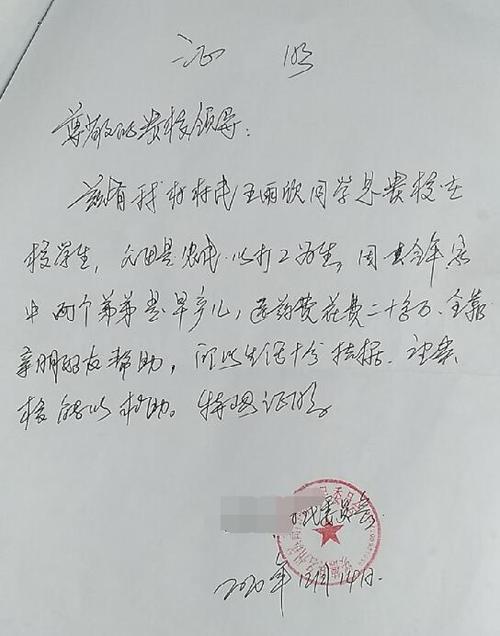 证明
尊敬的贵校领导:
兹有我村村民王雨欣同学是贵校在
校学生,父母是农民.以打工为生。因其今年家
中两个弟弟是早产儿,医药费花费二十多万.全靠
亲朋好友帮助,所以生活十分拮据.
校给以救助。特此证明
村民委员会
2020年12月14日.